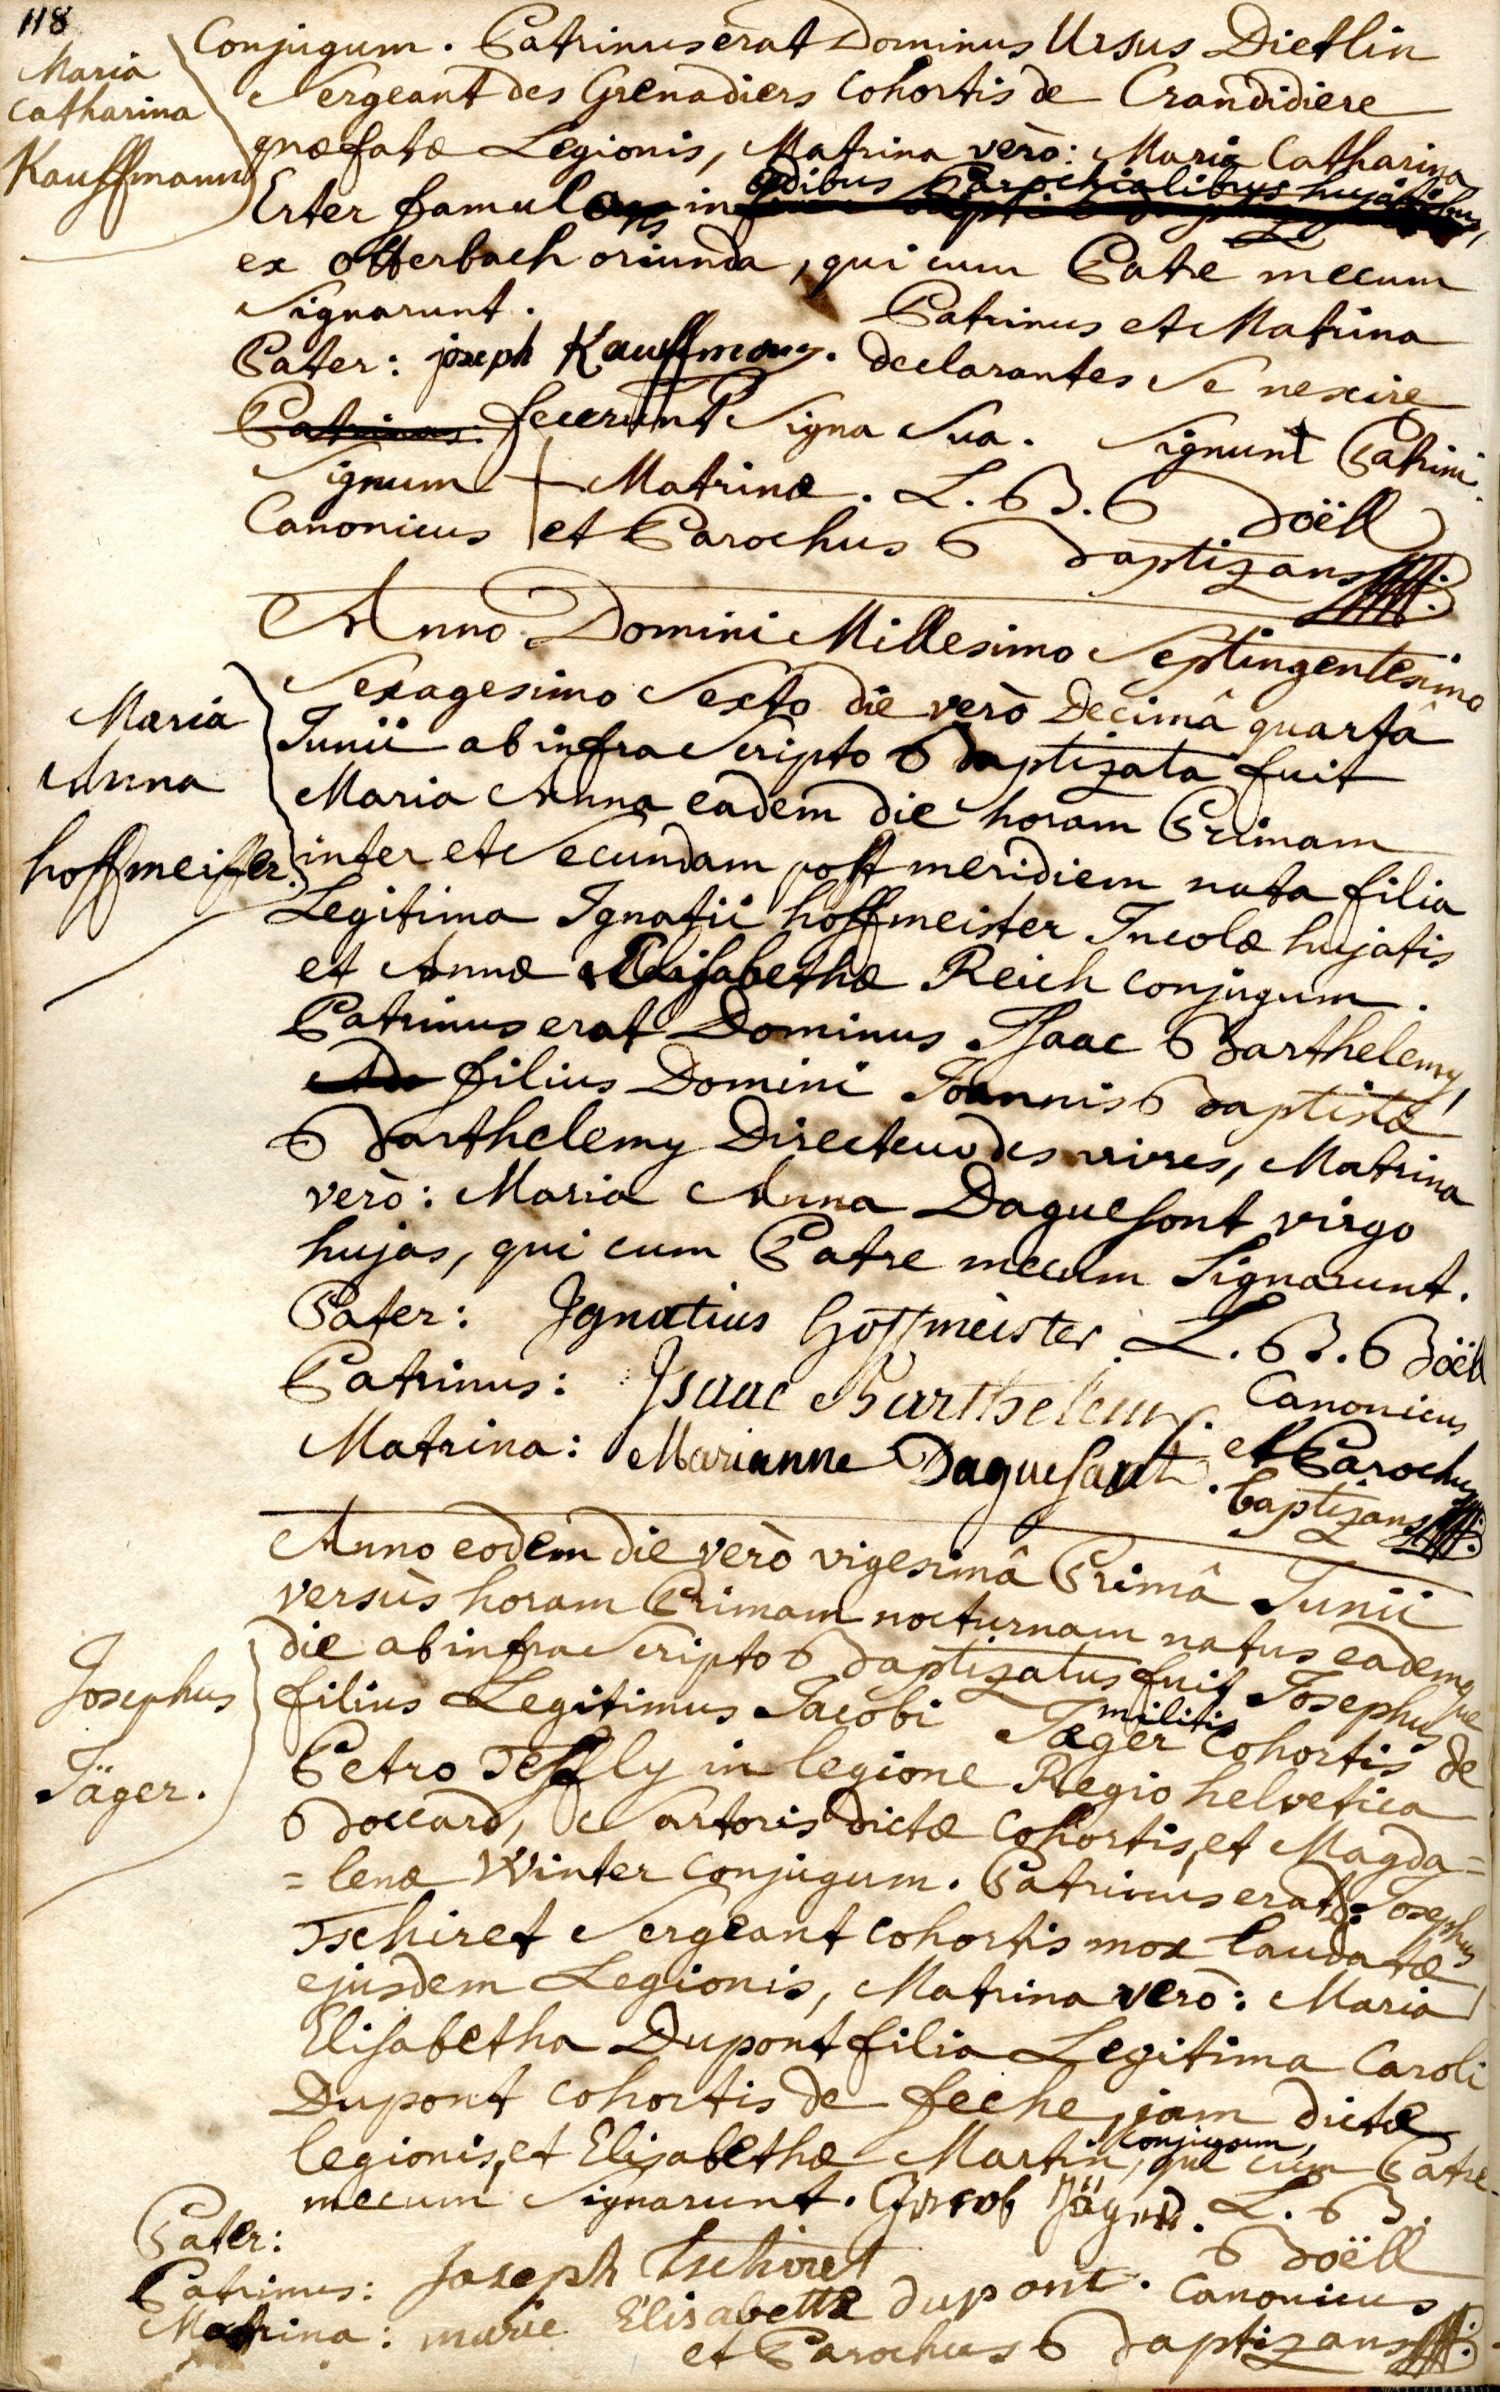 118
Maria
Catharina
Kauffmann
Conjugum. Patrinus erat Dominus Ursus Dietlin
Sergeant des Grenadiers Cohortis de Crandidiere
præfatæ Legionis, Matrina verò: Maria Catharina
ædibus Parochialibus hujatibus,
Erter famulans in
ex Otterbach oriunda, qui cum Patre mecum
Signarunt. Patrinus et Matrina
Pater: joseph Kauffmann. declarantes se nescire
Patrinus: fecerunt Signa sua. Signum + Patrini.
Signum + Matrinæ. L. B. Boëll
Canonicus et Parochus Baptizans
Maria
Anna
hoffmeister.
Anno Domini Millesimo Septingentesimo
Sexagesimo Sexto die verò Decimâ quartâ
Junii ab infra Scripto Baptizata fuit
Maria Anna eadem die horam Primam
inter et Secundam post meridiem nata filia
Legitima Ignatii hoffmeister Incolæ hujatis
et Annæ Elisabethæ Reich conjugum.
Patrinus erat Dominus Isaac Barthelemy,
filius Domini Joannis Baptistæ
Barthelemy Directeur des vivres, Matrina
verò: Maria Anna Daguesont virgo
hujas, qui cum Patre mecum Signarunt.
Pater: Ignatius Hoffmeister. L. B. Boëll
Patrinus: Isaac Barthelemy. Canonicus
Matrina: Marianne Daguesant. et Parochus
baptizans
Josephus
Jäger.
Anno eodem die verò vigesimâ Primâ Junii
versùs horam Primam nocturnam natus eademque
die ab infra Scripto Baptizatus fuit Josephus
filius Legitimus Jacobi Jæger militis Cohortis de
Petro Teffly in legione Regio helvetica
Boccard, Sartoris dictæ Cohortis, et Magda=
=lenæ Winter Conjugum. Patrinus erat: Josephus
Tschiret Sergeant cohortis mox laudatæ
ejusdem Legionis, Matrina verò: Maria
Elisabetha Dupont filia Legitima Caroli
Dupont cohortis de feche, jam dictæ
legionis, et Elisabethæ Martin, conjugum, qui cum Patre
mecum Signarunt. Jacob Jäger. L. B.
Pater: Boëll
Patrinus: Joseph Tschiret Canonicus
Matrina: marie Elisabetha dupont.
et Parochus Baptizans